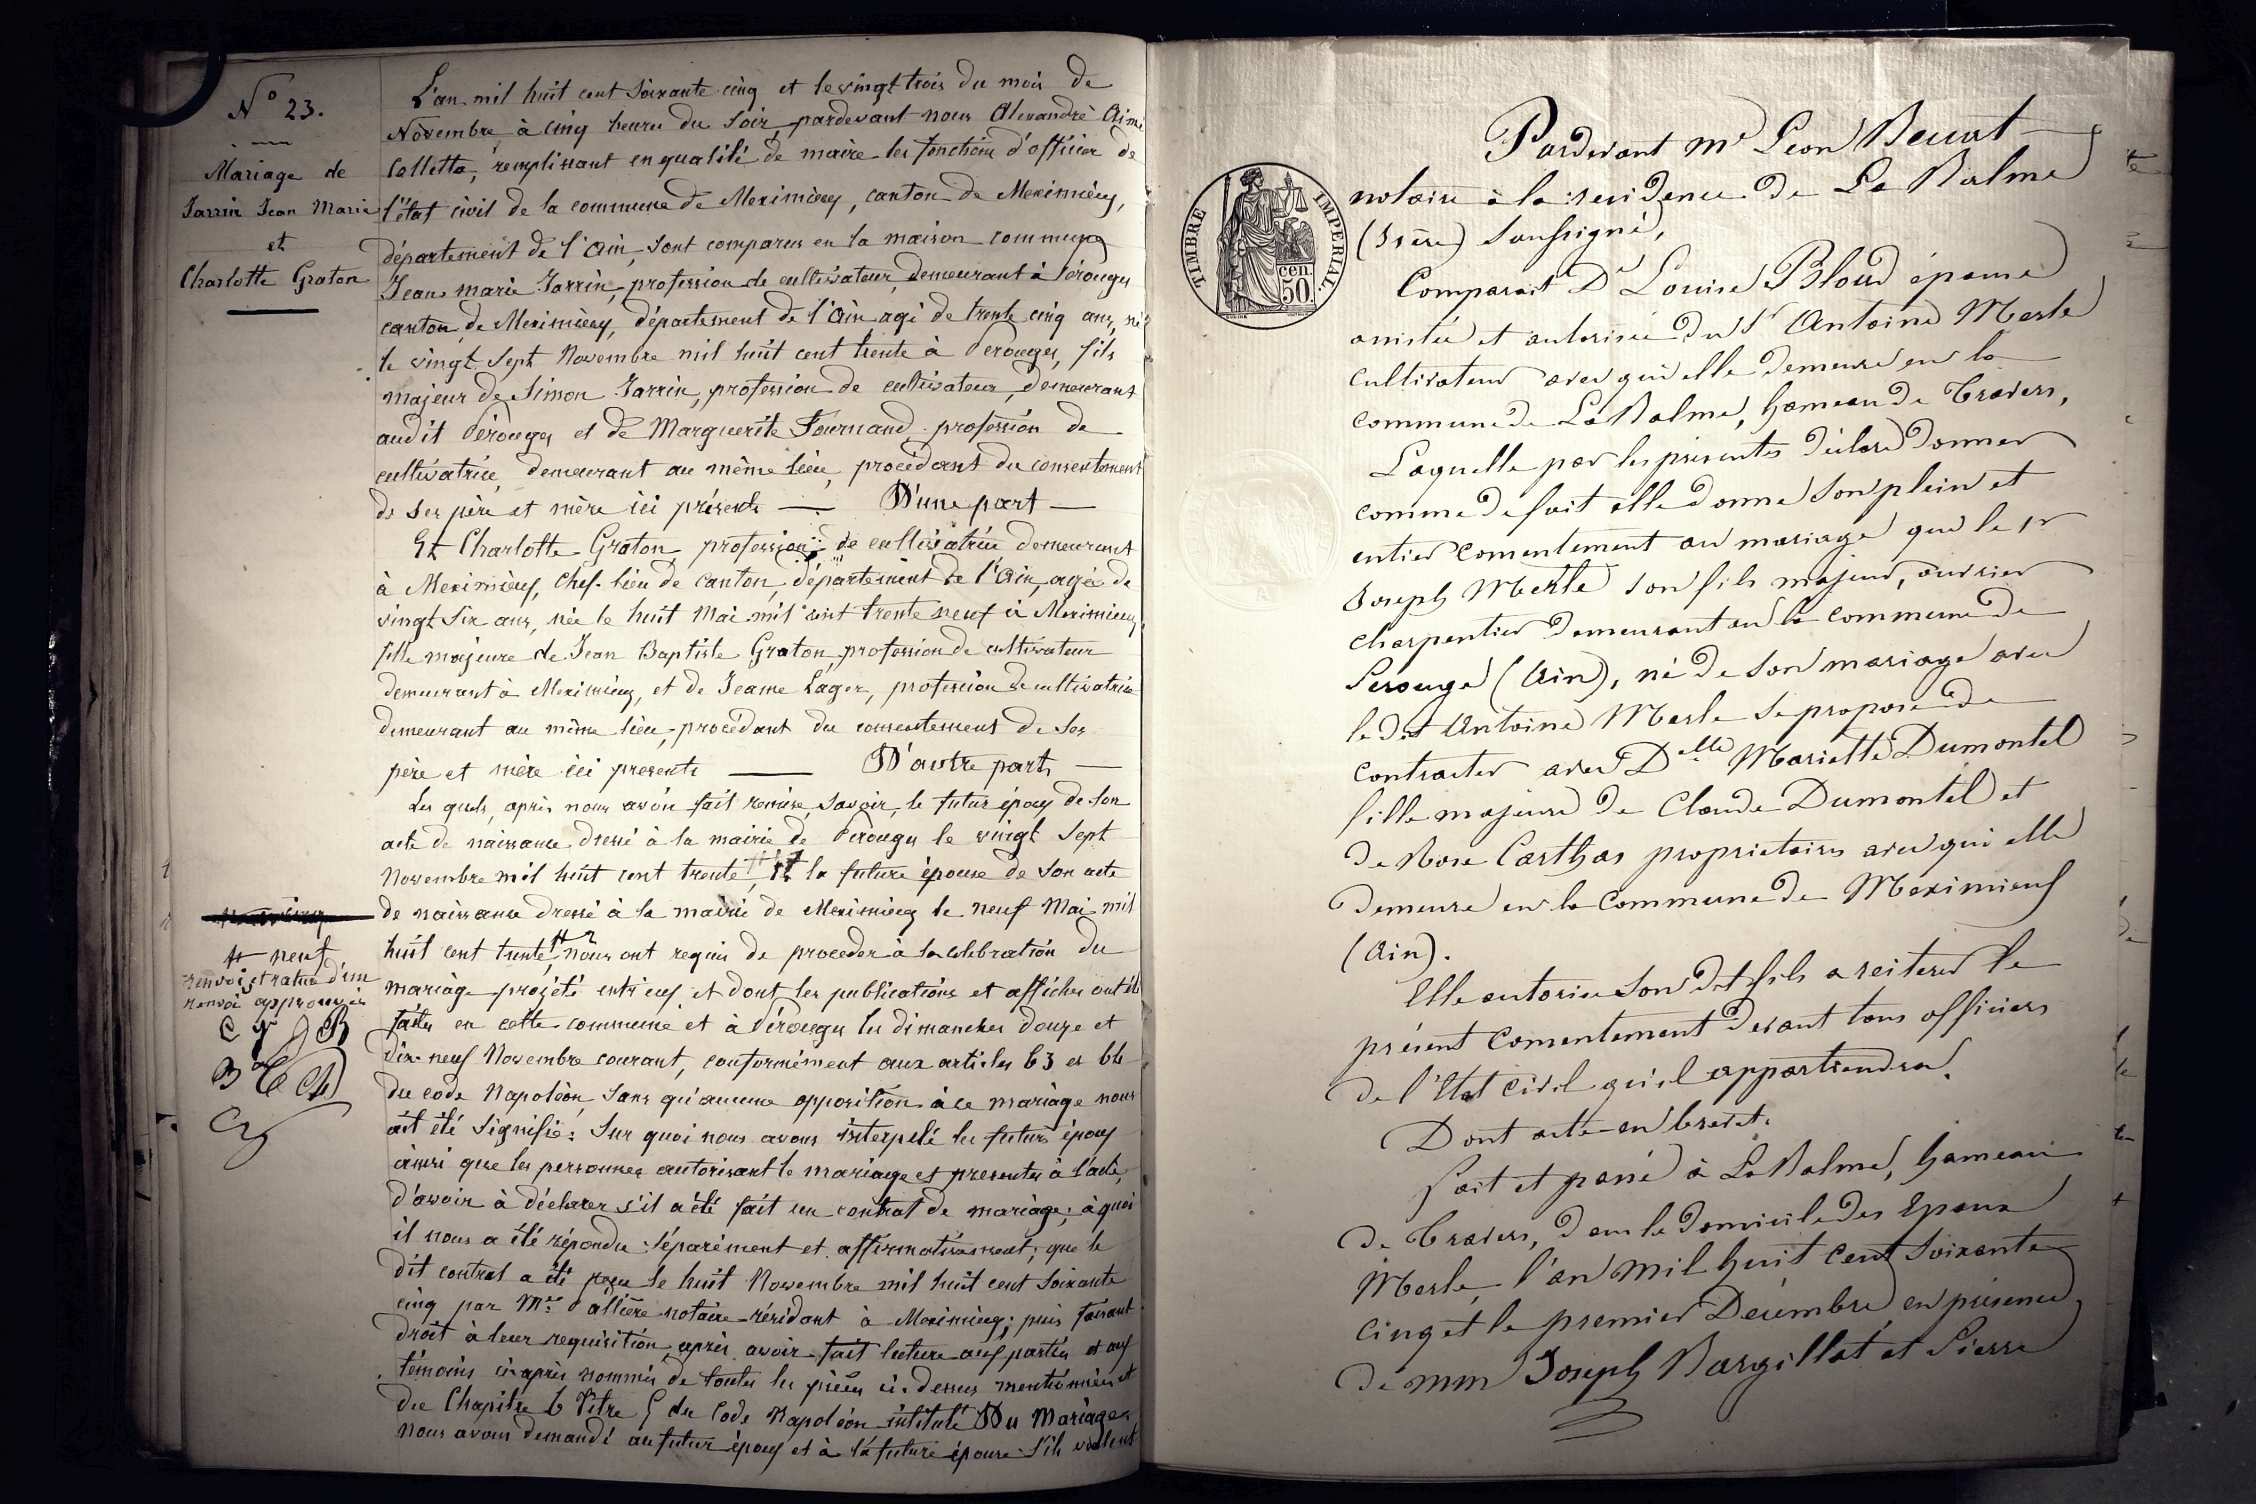 N° 23.
Mariage de
Jarrin Jean Marie
et
Charlotte Graton
L'an mil huit cent soixante cinq et le vingt trois du mois de
Novembre à cinq heures du soir, pardevant nous Alexandre Aimé
Collette, remplissant en qualité de maire les fonctions d'officier de
l'état civil de la commune de Meximieux, canton de Meximieux,
département de l'Ain, sont comparus en la maison commune
Jean marie Jarrin, profession de cultivateur, demeurant à Pérouges
canton de Meximieux, département de l'Ain agé de trente cinq ans, né
le vingt sept Novembre mil huit cent trente à Pérouges, fils
majeur de Simon Jarrin, profession de cultivateur, demeurant
audit Pérouges et de Marguerite Fournand, profession de
cultivatrice, demeurant au même lieu, procédant du consentement
de ses père et mère ici présents — D'une part —
Et Charlotte Graton profession de cultivatrice demeurant
à Meximieux, Chef-lieu de canton, département de l'Ain, agée de
vingt six ans, née le huit Mai mil cent trente neuf à Meximieux,
fille majeure de Jean Baptiste Graton, profession de cultivateur
demeurant à Meximieux, et de Jeanne Lager, profession de cultivatrice
demeurant au même lieu, procédant du consentement de ses
père et mère ici présents — D'autre part, —
Les quels, après nous avoir fait remise, savoir, le futur époux de son
acte de naissance dressé à la mairie de Pérouges le vingt sept
Novembre mil huit cent trente, Et la future épouse de son acte
de naissance dressé à la mairie de Meximieux le neuf Mai mil
huit cent trente # nous ont requis de proceder à la celebration du
mariage projété entr'eux et dont les publications et affiches ont été
faites en cette commune et à Pérouges les dimanches douze et
dix-neuf Novembre courant, conformément aux articles 63 et 66
du code Napoléon, sans qu'aucune opposition à ce mariage nous
ait été signifié: Sur quoi nous avons interpelé les futurs époux
ainsi que les personnes autorisant le mariage et presentes à l'acte,
d'avoir à déclarer s'il a été fait un contrat de mariage; à quoi
il nous a été répondu séparément et affirmativement, que le
dit contrat a été reçu le huit Novembre mil huit cent soixante
cinq par Me Pallière notaire résidant à Meximieux; puis faisant
droit à leur requisition, après avoir fait lecture aux parties et aux
témoins ci-après nommés de toutes les pièces ci-dessus mentionnées et
du Chapitre 6 titre 5 du Code Napoléon intitulé Du Mariage,
nous avons demandé au futur époux et à la future épouse s'ils veulent
# neuf
renvoi et rature d'un
renvoi approuvés
TIMBRE IMPERIAL.
50 cen.
Pardevant Me Léon Beurat
notaire à la résidence de La Balme
(Isère) soussigné,
Comparait De Louise Bloud épouse
assistée et autorisée du Sr Antoine Merle
cultivateur avec qui elle demeure en la
commune de La Balme, hameau de Travers,
Laquelle par les présentes déclare donner
comme de fait elle donne son plein et
entier consentement au mariage que le sr
Joseph Merle son fils majeur, ouvrier
charpentier demeurant en la commune de
Perouge (Ain), né de son mariage avec
le dit Antoine Merle se propose de
contracter avec Delle Mariette Dumontel
fille majeure de Claude Dumontel et
de Rose Carthas propriétaires avec qui elle
demeure en la commune de Meximieux
(Ain).
Elle autorise son dit fils a reiterer le
présent consentement devant tous officiers
de l'Etat civil qu'il appartiendra.
Dont acte en brevet.
Fait et passé à La Balme, hameau
de Travers, dans le domicile des Epoux
Merle, l'an mil huit cent soixante
cinq et le premier Décembre, en présence
de mm Joseph Bargillat et Pierre